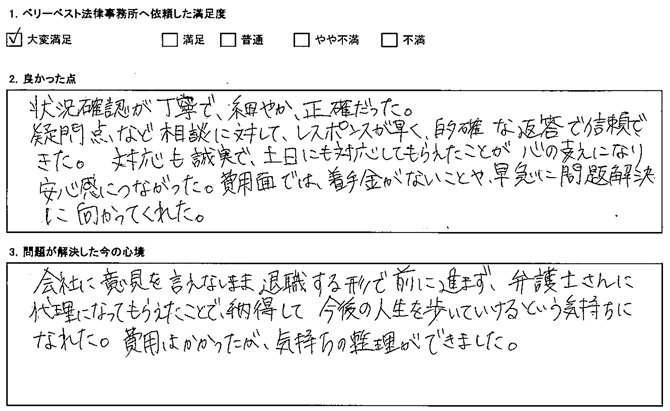 1. ベリーベスト法律事務所へ依頼した満足度
☑ 大変満足 □ 満足 □ 普通 □ やや不満 □ 不満
2. 良かった点
状況確認が丁寧で、細やか、正確だった。
疑問点、など相談に対して、レスポンスが早く、的確な返答で信頼で
きた。 対応も誠実で、土日にも対応してもらえたことが心の支えになり
安心感につながった。費用面では、着手金がないことや、早急に問題解決
に向かってくれた。
3. 問題が解決した今の心境
会社に意見を言えないまま退職する形で前に進まず、弁護士さんに
代理になってもらえたことで、納得して今後の人生を歩いていけるという気持ちに
なれた。費用はかかったが、気持ちの整理ができました。